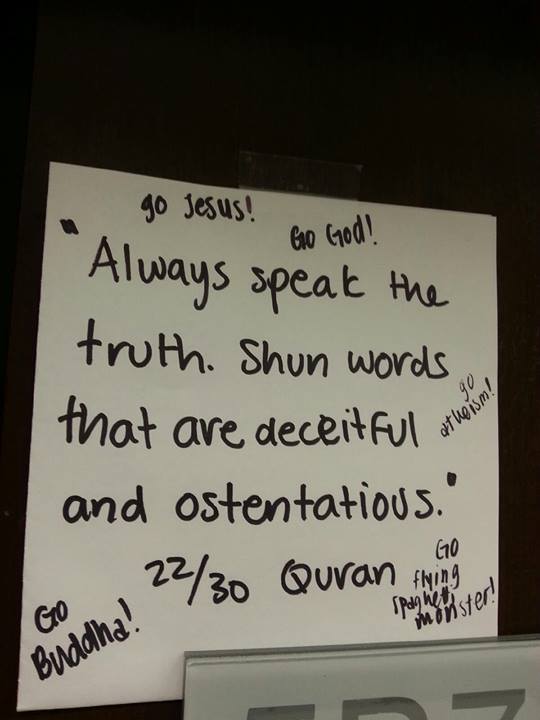 go Jesus!
Go God!
"Always speak the
truth. Shun words
that are deceitful
go
atheism!
and ostentatious."
22/30 Quran
Go
flying
spaghetti
monster!
Go
Buddha!